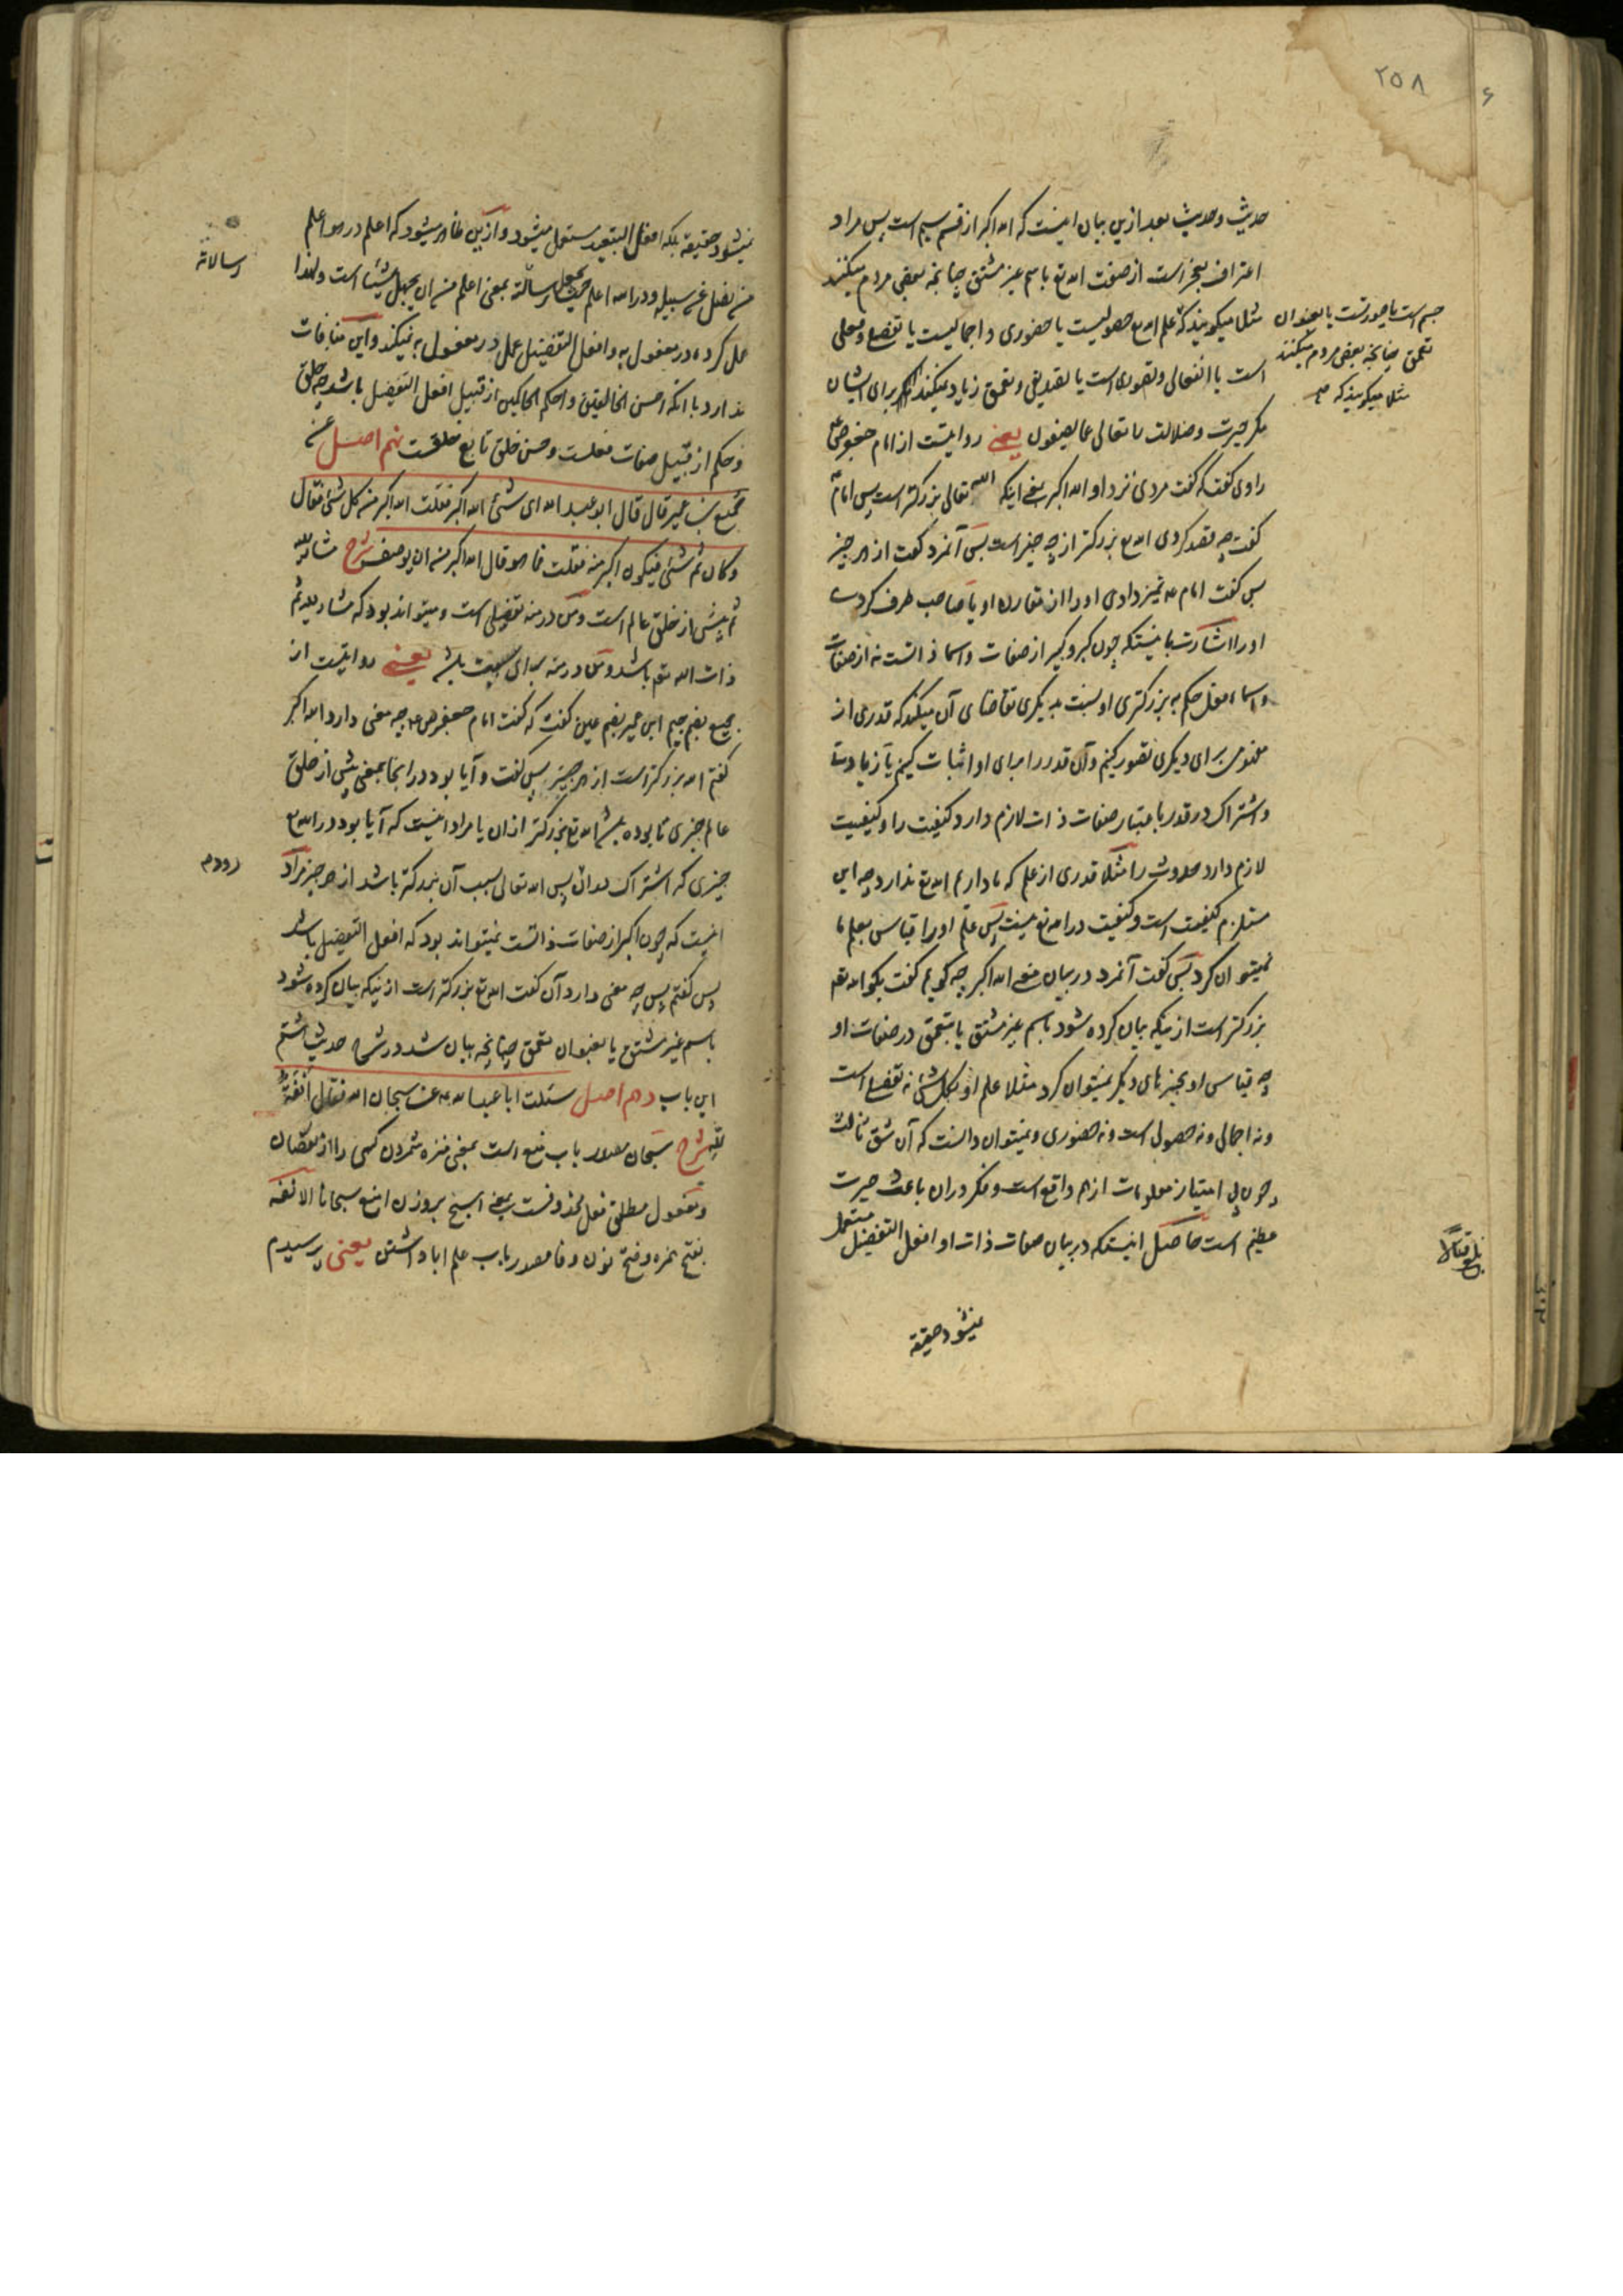 ۲۵۸
۶
حدیث و حدیث بعد ازین بیان اینست که الله اکبر از قسم سیم است پس مراد
اعتراف بعجز است از صفت الله تع باسم غیر مشتق چنانچه بعضی مردم میکنند
جسم است یا صورتست یا بعنوان
تعمق چنانچه بعضی مردم میکنند
مثلا میگویند که
مثلا میگویند که علم الله تع حصولیست یا حضوری و اجمالیست یا تفصیلی و فعلی
است یا انفعالی و تصوری است یا تصدیقی و تعمق زیاد میکنند برای ایشان
مگر حیرت و ضلالت تعالی عما یصفون یعنی روایتست از امام جعفر ص ع
راوی گفت که گفت مردی نزد او الله اکبر یعنی اینکه الله تعالی بزرگتر است پس امام ع
گفت چه قصد کردی الله تع بزرگتر از چه چیز است پس آنمرد گفت از هر چیز
پس گفت امام ع تمیز دادی او را از مقارن او یا صاحب طرف کردی
او را اشارت باینستکه چون کبر و کبیر از صفات و اسما ذاتست نه از صفات
و اسماء فعل حکم به بزرگتری او نسبت بدیگری تقاضای آن میکند که قدری از
مفهومی برای دیگری تصور کنیم و آن قدر را برای او اثبات کنیم با زیادت
و اشتراک در قدر باعتبار صفات ذات لازم دارد کیفیت را و کیفیت
لازم دارد حدوث را مثلا قدری از علم که ما داریم الله تع ندارد چه این
مستلزم کیفیت است و کیفیت در الله تع نیست پس علم او را قیاس بعلم ما
نمیتوان کرد پس گفت آنمرد در بیان معنی الله اکبر چه گویم گفت بگو الله تع
بزرگتر است از نیکه بیان کرده شود باسم غیر مشتق یا بتعمق در صفات او
چه قیاس او بچیزهای دیگر نمیتوان کرد مثلا علم او بکل شئ نه تفصیلی است
و نه اجمالی و نه حصولی است و نه حضوری و نمیتوان دانست که آن شق ثالث
چون بی امتیاز معلومات از هم واقع است و فکر در ان باعث حیرت
عظیم است حاصل اینستکه در بیان صفات ذات او افعل التفضیل مستعمل
نمیشود حقیقة
نمیشود حقیقة بلکه افعل التبعید مستعمل میشود و ازین ظاهر میشود که اعلم در هو اعلم
من یضل عن سبیله و در الله اعلم حیث یجعل رسالته بمعنی اعلم من ان یجهل شیئا است و لهذا
رسالاته
عمل کرده در مفعول به و افعل التفضیل عمل در مفعول به نمیکند و این منافات
ندارد با انکه احسن الخالقین و احکم الحاکمین از قبیل افعل التفضیل باشد چه خلق
و حکم از قبیل صفات فعلست و حسن خلق تابع خلقست نهم اصل عن
جمیع بن عمیر قال قال ابو عبد الله ای شئ الله اکبر فقلت الله اکبر من کل شئ فقال
و کان ثم شئ فیکون اکبر منه فقلت فما هو قال الله اکبر من ان یوصف شرح مشار الیه
ثم پیش از خلق عالم است و من در منه تفضیلی است و میتواند بود که مشار الیه ثم
ذات الله تع باشد و من در منه برای سببیت باشد یعنی روایتست از
جمیع بضم جیم ابن عمیر بضم عین گفت که گفت امام جعفر ص ع چه معنی دارد الله اکبر
گفتم الله بزرگتر است از هر چیز پس گفت و آیا بود در انجا بمعنی پیش از خلق
عالم چیزی تا بوده باشد الله تع بزرگتر از ان یا مراد اینست که آیا بود در الله تع
چیزی که اشتراک در ان پس الله تعالی بسبب آن بزرگتر باشد از هر چیز مراد
اینست که چون اکبر از صفات ذاتست نمیتواند بود که افعل التفضیل باشد
پس گفتم پس چه معنی دارد آن گفت الله تع بزرگتر است از نیکه بیان کرده شود
باسم غیر مشتق یا بعنوان تعمق چنانچه بیان شد در شرح حدیث هشتم
این باب دهم اصل سئلت ابا عبد الله ع عن سبحان الله فقال انفة
لله شرح سبحان مصدر باب منع است بمعنی منزه شمردن کسی را از نقصان
و مفعول مطلق فعل محذوفست یعنی اسبح بروزن امنع سبحانا الانفه
بفتح همزه و فتح نون و فا مصدر باب علم ابا داشتن یعنی پرسیدم